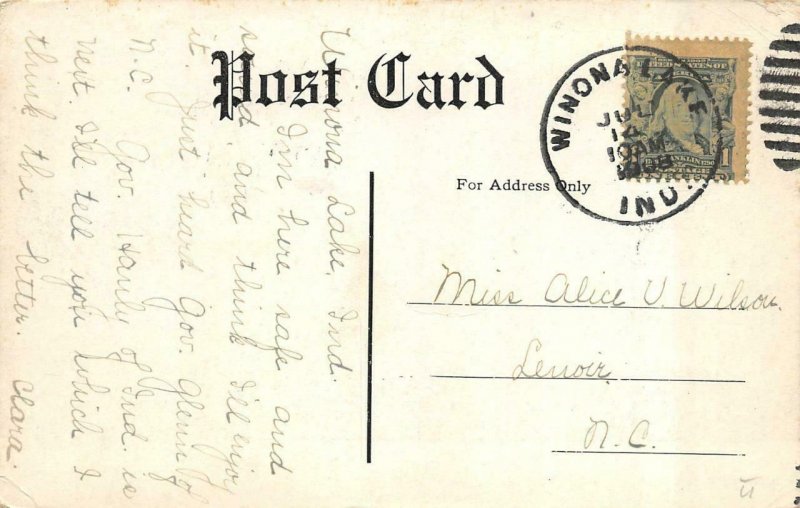 Post Card
For Address Only
WINONA LAKE
JUL
14
10 AM
IND.
Winona Lake, Ind.
I'm here safe and
sound, and think I'll enjoy
it. Just heard Gov. Glenn of
N.C. Gov. Hanly of Ind. is
next. I'll tell you which I
think the better. Clara.
Miss Alice V. Wilson.
Lenoir
N. C.